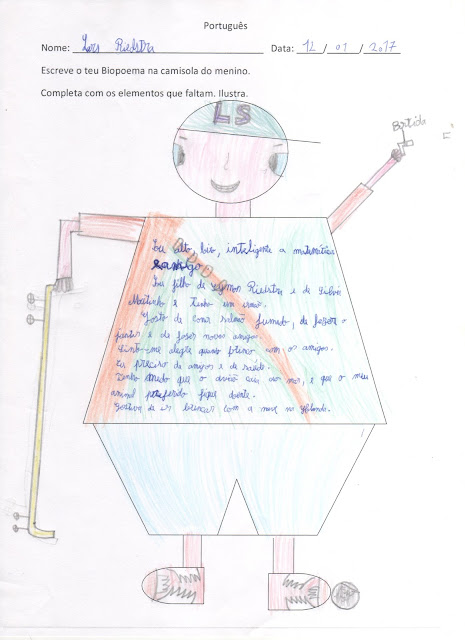 Português
Nome: Riedstra Data: 12 / 01 / 2017
Escreve o teu Biopoema na camisola do menino.
Completa com os elementos que faltam. Ilustra.
LS
Batida
Sou alto, loiro, inteligente a matemática
e amigo
Sou filho de Riedstra e de Sílvia
e tenho um irmão.
Gosto de comer salmão fumado, de fazer o
e de fazer novos amigos.
Sinto-me alegre quando brinco com os amigos.
Eu preciso de amigos e de saúde.
Tenho medo que o avião caia no mar, e que o meu
animal preferido fique doente.
Gostava de ir brincar com a neve na Holanda.